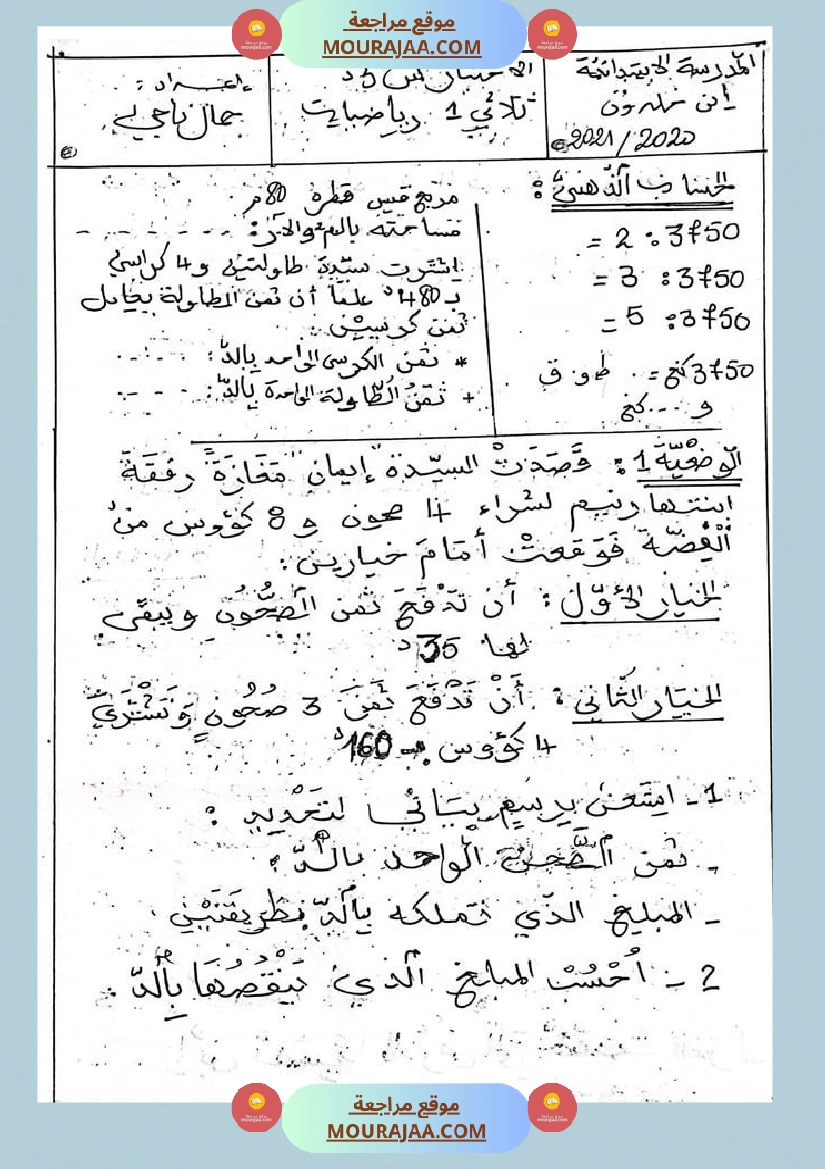 موقع مراجعة
MOURAJAA.COM
المدرسة الابتدائية
ابن خلدون
2021/2020
ثلاثي 1 رياضيات
إعداد:
جمال ناجي
الحساب الذهني:
3750 : 2 =
3750 : 3 =
3750 : 5 =
3750كغ = .. ط و ق
و ... كغ
مربع قيس قطره 80م
مساحته بالم² والآر: - - - - - -
اشترت سيّدة طاولتين و 4 كراسي
بـ 480د علما أن ثمن الطاولة يعادل
ثمن كرسيين:
* ثمن الكرسي الواحد بالدّ: - ....
+ ثمنُ الطّاولة الواحدة بالدّ: - - . - :
الوضعيّة 1: قَصَدَتْ السيّدة إيمان مَغَازَةً رفقَةَ
ابنتها رنيم لشراء 4 صحون و 8 كؤوس من
الْفِضّة فَوَقعتْ أمَامَ خيارين:
الخيار الأوّل: أن تَدْفَعَ ثمن الصُّحُونِ ويبقى
لها 35د
الخيار الثّاني: أَنْ تَدْفَعَ ثَمَنَ 3 صُحُونٍ وَتَشْتَرِيَ
4 كؤوس بـ 160د
1 - اِستَعن بِرسمٍ بيَانيّ لتَحْدِيدِ:
- ثمن الصَّحن الواحد بالدّ؟
- المبلغ الذّي تملكه بالدّ بطريقَتَيْنِ.
2 - اُحْسُبْ المبلغ الّذي يَنْقُصُهَا بِالدّ.
موقع مراجعة
MOURAJAA.COM